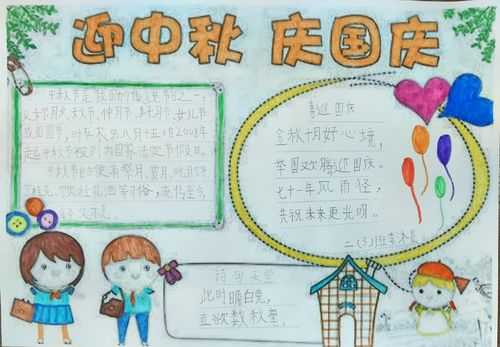 迎中秋 庆国庆
中秋节是我国的传统节日之一,
又称月夕、秋节、仲秋节、
或团圆节, 时在农历八月十五;自2008年
起中秋节被列为国家法定节假日。
中秋节自古便有祭月、赏月、吃月饼、
饮桂花酒等习俗, 流传至今,
喜迎国庆
金秋十月好心境,
举国欢腾迎国庆。
七十一年风雨径,
共祝未来更光明。
二(3)班
此时瞻白兔,
直欲数秋毫。